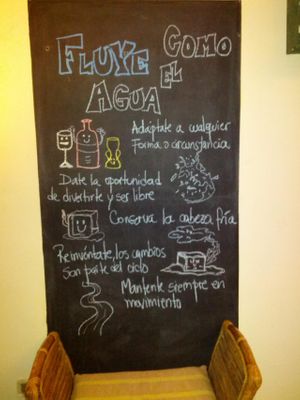 FLUYE COMO
EL
AGUA
Adáptate a cualquier
Forma o circunstancia
Date la oportunidad
de divertirte y ser libre
Conserva la cabeza fría
Reinvéntate, los cambios
Son parte del ciclo
Mantente siempre en
movimiento